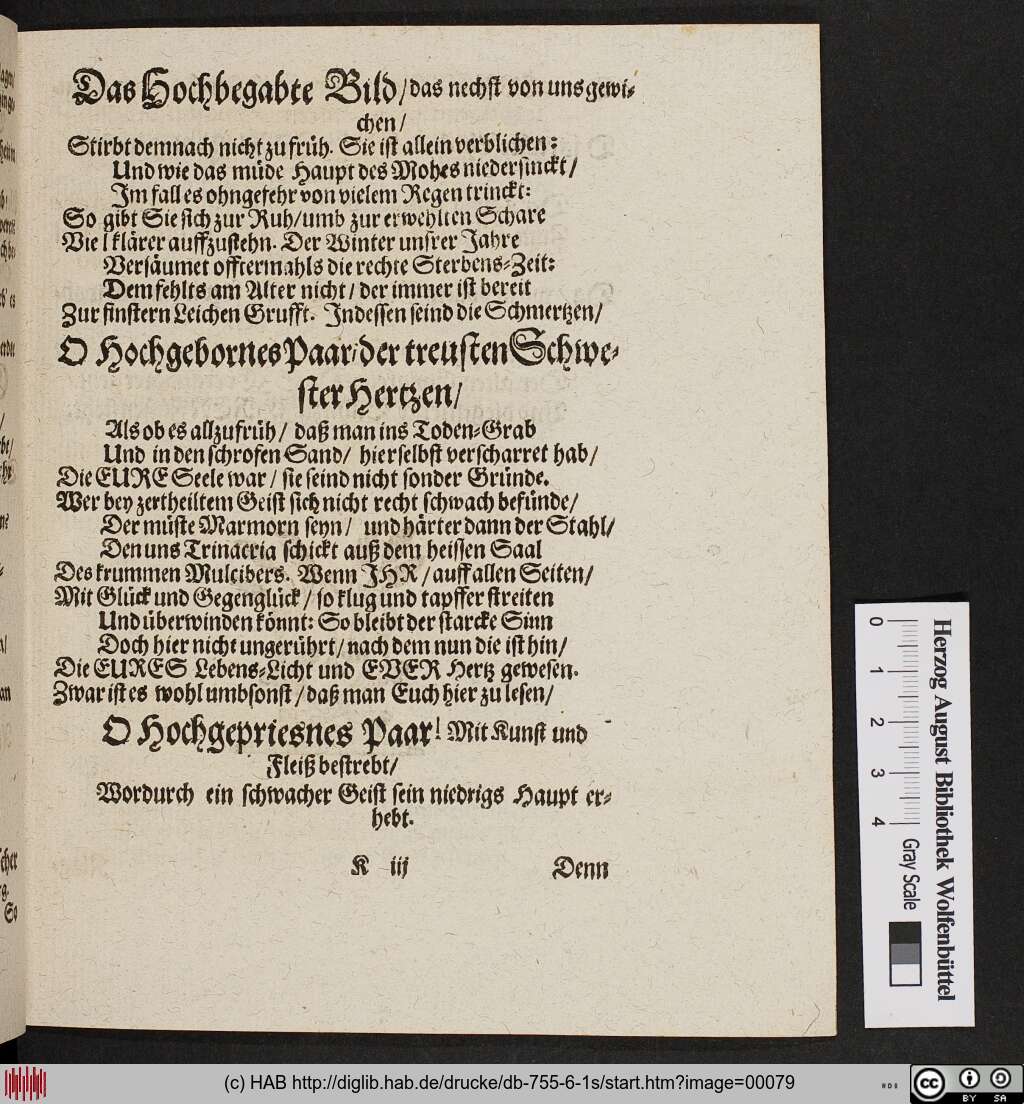 Das Hochbegabte Bild/das nechst von uns gewi-
chen/
Stirbt demnach nicht zu früh. Sie ist allein verblichen:
Und wie das müde Haupt des Mohes niedersinckt/
Im fall es ohngefehr von vielem Regen trinckt:
So gibt Sie sich zur Ruh/umb zur erwehlten Schare
Viel klärer auffzustehn. Der Winter unsrer Jahre
Versäumet offtermahls die rechte Sterbens-Zeit:
Dem fehlts am Alter nicht/ der immer ist bereit
Zur finstern Leichen Grufft. Indessen seind die Schmertzen/
O Hochgebornes Paar/der treusten Schwe-
ster Hertzen/
Als ob es allzufrüh/ daß man ins Toden-Grab
Und in den schrofen Sand/ hierselbst verscharret hab/
Die EURE Seele war/ sie seind nicht sonder Gründe.
Wer bey zertheiltem Geist sich nicht recht schwach befünde/
Der müste Marmorn seyn/ und härter dann der Stahl/
Den uns Trinacria schickt auß dem heissen Saal
Des krummen Mulcibers. Wenn IHR/auff allen Seiten/
Mit Glück und Gegenglück/ so klug und tapffer streiten
Und überwinden könnt: So bleibt der starcke Sinn
Doch hier nicht ungerührt/nach dem nun die ist hin/
Die EURES Lebens-Licht und EVER Hertz gewesen.
Zwar ist es wohl umbsonst/daß man Euch hier zu lesen/
O Hochgepriesnes Paar! Mit Kunst und
Fleiß bestrebt/
Wordurch ein schwacher Geist sein niedrigs Haupt er-
hebt.
K iij Denn
Herzog August Bibliothek Wolfenbüttel
0 1 2 3 4 Gray Scale
(c) HAB http://diglib.hab.de/drucke/db-755-6-1s/start.htm?image=00079
cc BY SA